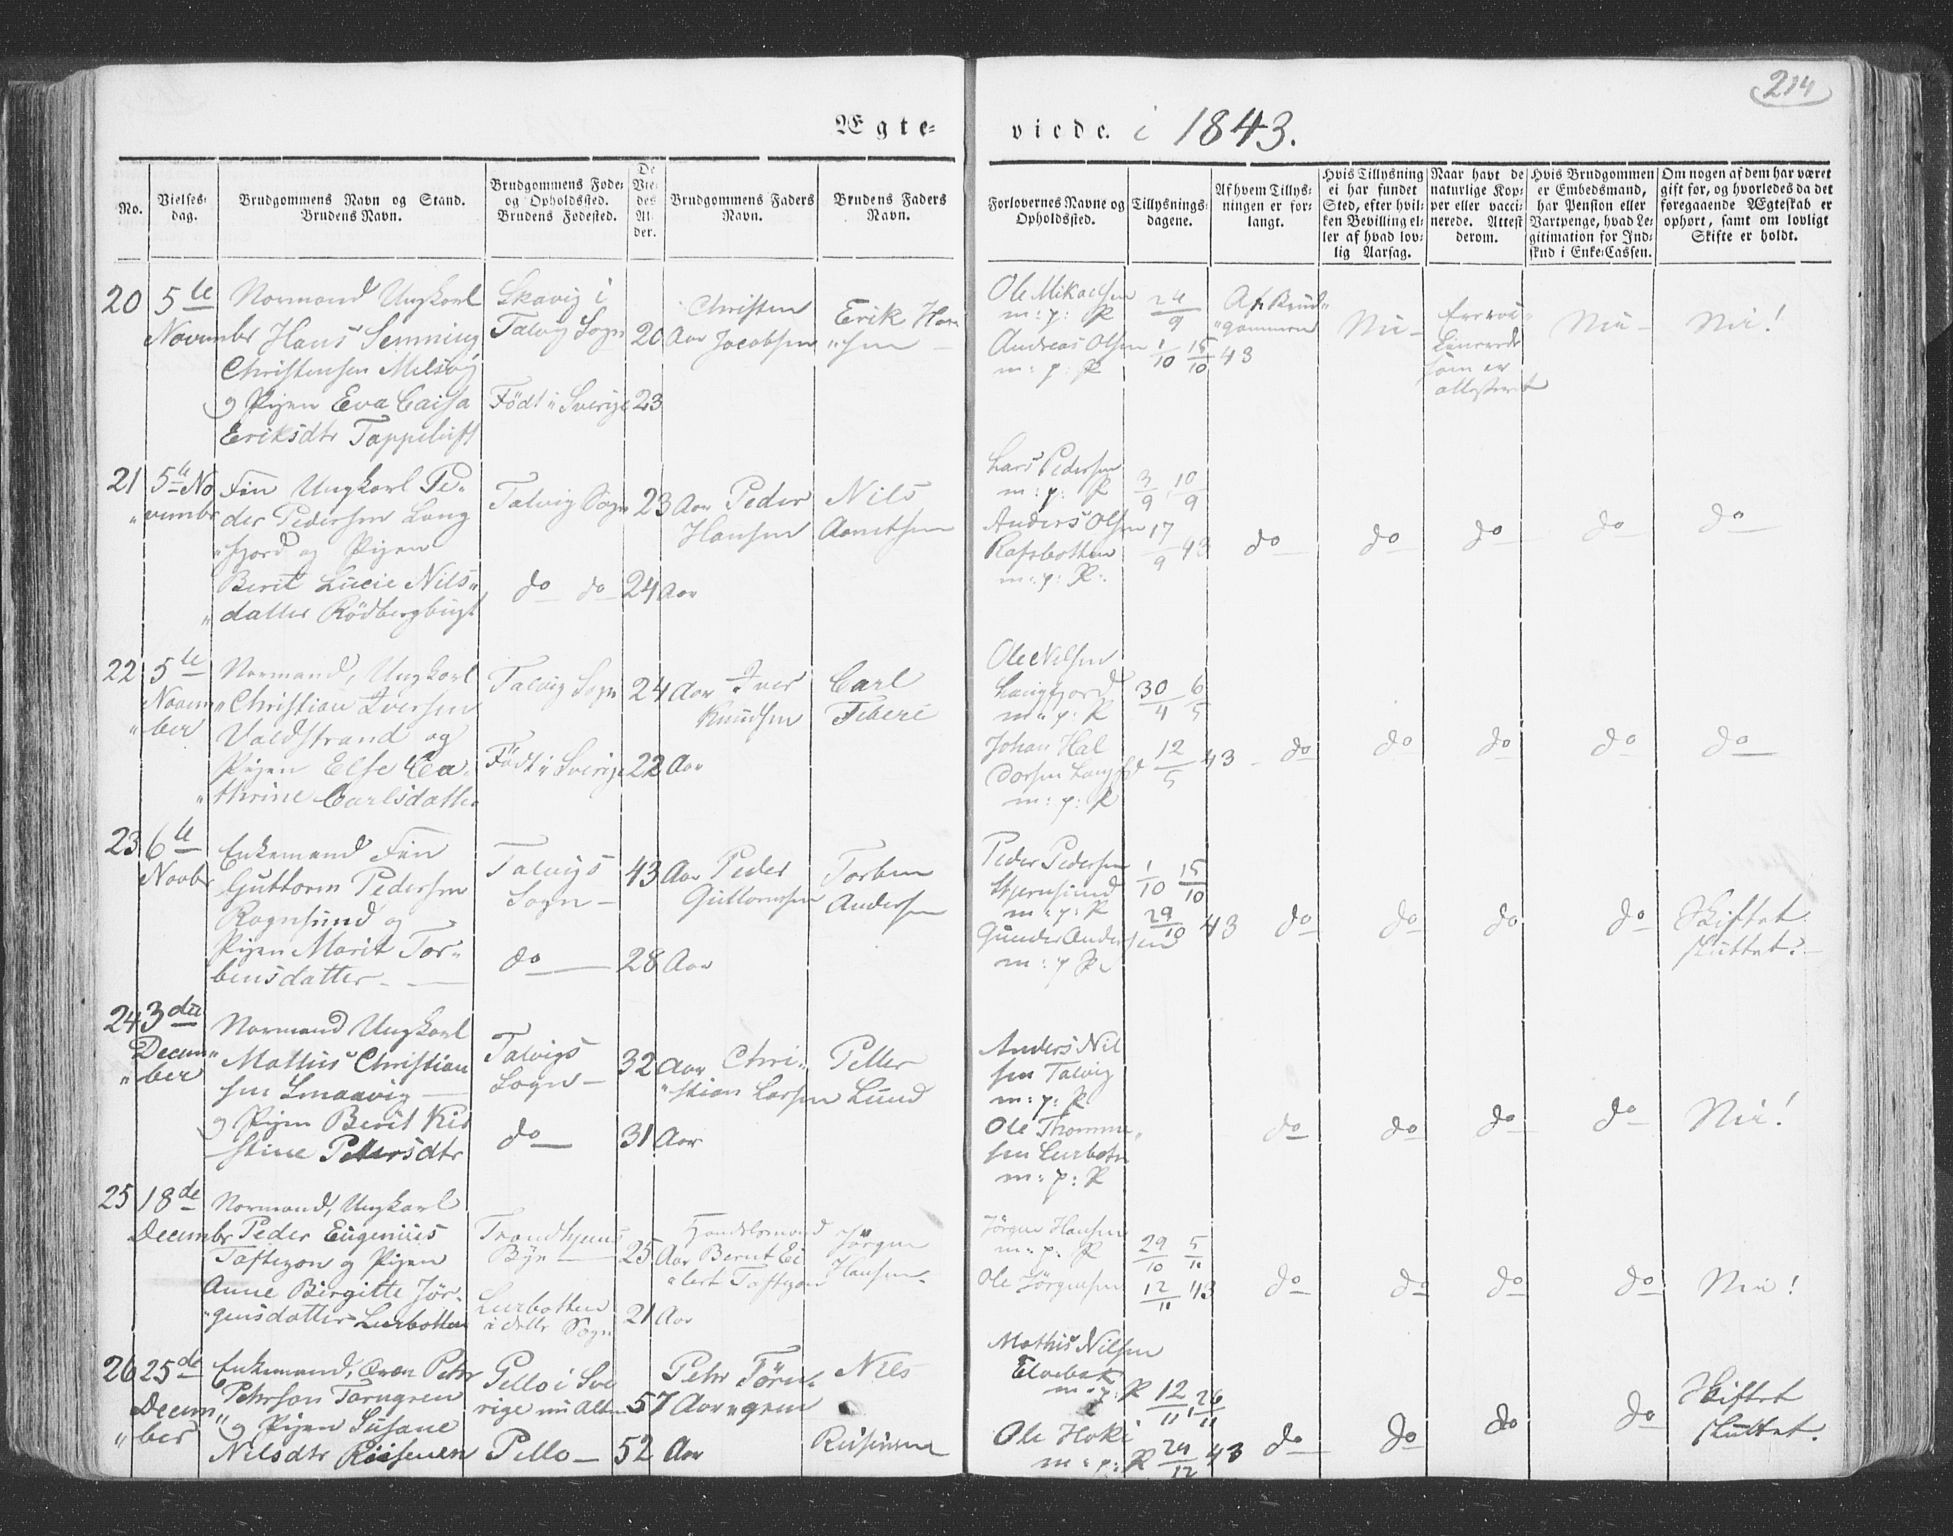 214
Ægte=
viede. i 1843.
No.
Vielses=
dag.
Brudgommens Navn og Stand.
Brudens Navn.
Brudgommens Føde=
og Opholdssted.
Brudens Fødested.
De
Vie=
des
Al=
der.
Brudgommens Faders
Navn.
Brudens Faders
Navn.
Forlovernes Navne og
Opholdssted.
Tillysnings=
dagene.
Af hvem Tillys=
ningen er for=
langt.
Hvis Tillysning
ei har fundet
Sted, efter hvil=
ken Bevilling el=
ler af hvad lov=
lig Aarsag.
Naar havt de
naturlige Kop=
per eller vacci=
nerede. Attest
derom.
Hvis Brudgommen
er Embedsmand,
har Pension eller
Vartpenge, hvad Le=
gitimation for Ind=
skud i Enke=Cassen.
Om nogen af dem har været
gift før, og hvorledes da det
foregaaende Ægteskab er
ophørt, samt om lovligt
Skifte er holdt.
20
5te
Novembr
Normand Ungkarl
Hans Henning
Christensen Melsvig
og Pigen Eva Caisa
Eriksdtr
Skavig i
Talvig Sogn
Födt i Sverige
20 Aar
23
Christen
Jacobsen
Erik Han
"sen
Ole Mikaelsen
m: p: P
Andreas Olsen
m: p: P
24/9
1/10 15/10 43
Af Brud"
"gommen
Nei
Ere va"
som er
attesteret
Nei
Nei!
21
5te No
"vembr
Fin Ungkarl Pe"
der Pedersen Lang
"fjord og Pigen
Berit Lucie Nils"
"datter Rödbergbugt
Talvig Sogn
do do
23 Aar
24 Aar
Peder
Hansen
Nils
Lars Pedersen
m: p: P
Anders Olsen
Rafsbotten
m: p: P.
3/9 10/9
17/9 43
do
do
do
do
do
22
5te
Novem"
"ber
Normand, Ungkarl
"Christian Iversen
Valdstrand og
Pigen Else Ca"
"thrine Carlsdatter
Talvig Sogn
Födt i Sverige
24 Aar
22 Aar
Iver
Knudsen
Carl
Ole Nilsen
Langfjord
m: p: P
Johan Hal
dorsen Langfd
m: p: P
30/4 6/5
12/5 43
do
do
do
do
do
23
6te
Novbr
Enkemand Fin
Guttorm Pedersen
Rognsund og
Pigen Marit Tor"
bensdatter
Talvigs
Sogn
do
43 Aar
28 Aar
Peder
Guttormsen
Torben
Andersen
Peder Pedersen
Stjernsund
m: p: P
Gunder Ander
sen
m: p P.
1/10 15/10
29/10 43
do
do
do
do
Skiftet
sluttet.
24
3die
Decem"
"ber
Normand Ungkarl
Mathis Christian
sen Smaavig
og Pigen Berit Kir
stine Pettersdtr
Talvigs
Sogn
do
32 Aar
31 Aar
Chri"
"stian Larsen
Petter
Lund
Anders Nil
sen Talvig
m: p: P
Ole Thomme"
sen Lerbotn
m: p: P
do
do
do
do
Nei!
25
18de
Decembr
Normand, Ungkarl
Peder Eugenius
Taftezon og Pigen
Anne Birgitte Jör"
"gensdatter Lerbotten
Trondhjems
By
Lerbotten
i dette Sogn
25 Aar
21 Aar
Handelsmand
Bernt Ei
"lert Taftezon
Jörgen
Hansen
Jörgen Hansen
m: p: P
Ole Jörgensen
29/10 5/11
12/11 43
do
do
do
do
Nei!
26
25de
Decem"
"ber
Enkemand, Qvæn Petr
Pehrson Torngren
og Pigen Susane
Nilsdtr
Pello i Sve
rige nu Alten
Pello
57 Aar
52 Aar
Pehr Törn"
"gren
Nils
Mathis Nilsen
Elvebak
m: p: P
Ole Hoki
m: p: P
12/11 26/11
24/12 43
do
do
do
do
Skiftet
sluttet.